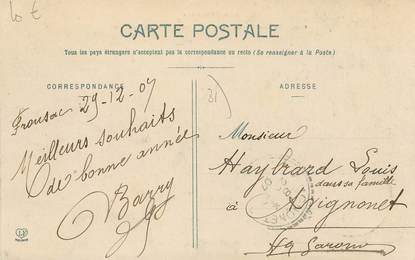 10 €
CARTE POSTALE
Tous les pays étrangers n'acceptent pas la correspondance au recto (Se renseigner à la Poste)
CORRESPONDANCE
ADRESSE
31
Fronsac 29-12-07
Meilleurs souhaits
de bonne année
Barry
Monsieur
Haybrard Louis
dans sa famille
à Avignonet
Hte Garonne